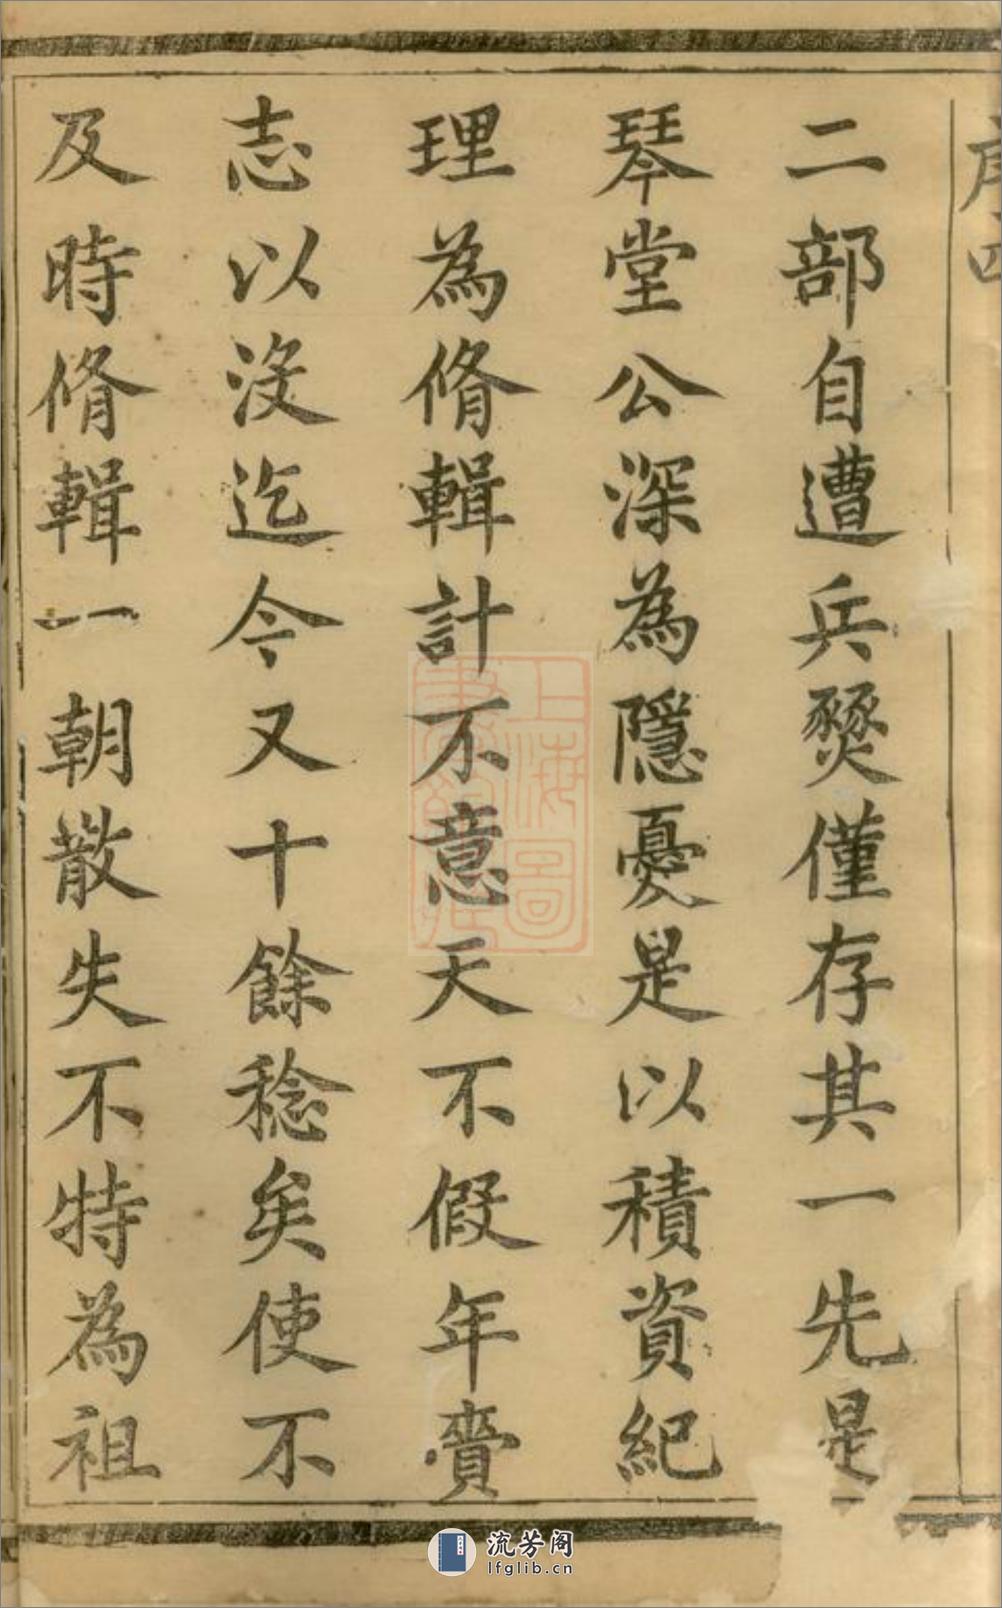 序四
二部自遭兵燹僅存其一先是
琴堂公深為隱憂是以積資紀
理為脩輯計不意天不假年賷
志以沒迄今又十餘稔矣使不
及時脩輯一朝散失不特為祖
上海圖書館藏
流芳阁
lfglib.cn